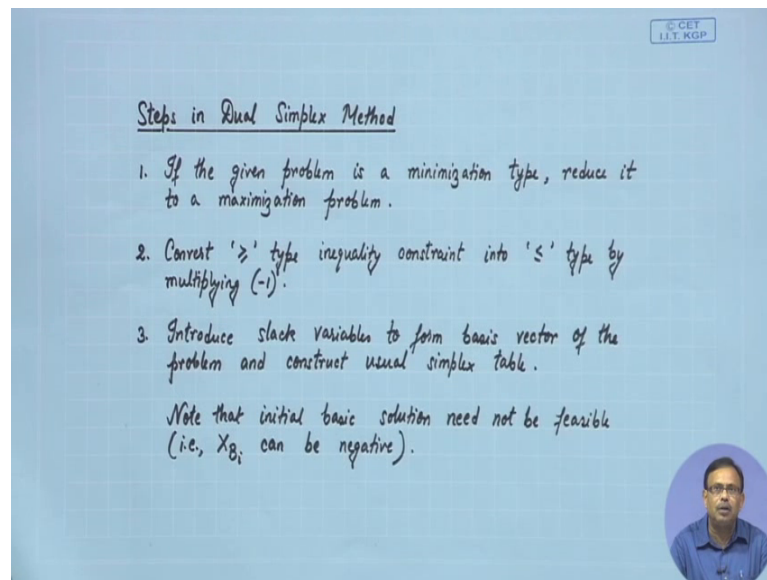 © CET
I.I.T. KGP
Steps in Dual Simplex Method
1. If the given problem is a minimization type, reduce it
to a maximization problem.
2. Convert '≥' type inequality constraint into '≤' type by
multiplying (-1).
3. Introduce slack variables to form basis vector of the
problem and construct usual simplex table.
Note that initial basic solution need not be feasible
(i.e., XBi can be negative).